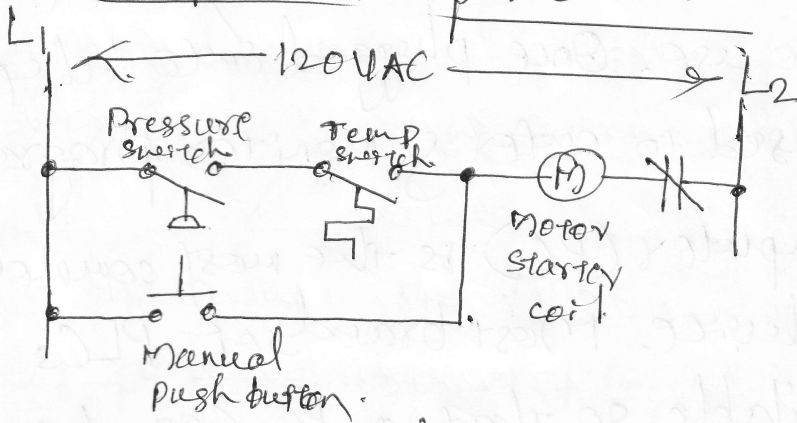 L1
120VAC
L2
Pressure
switch
Temp
switch
M
Motor
starter
coil
Manual
push button.